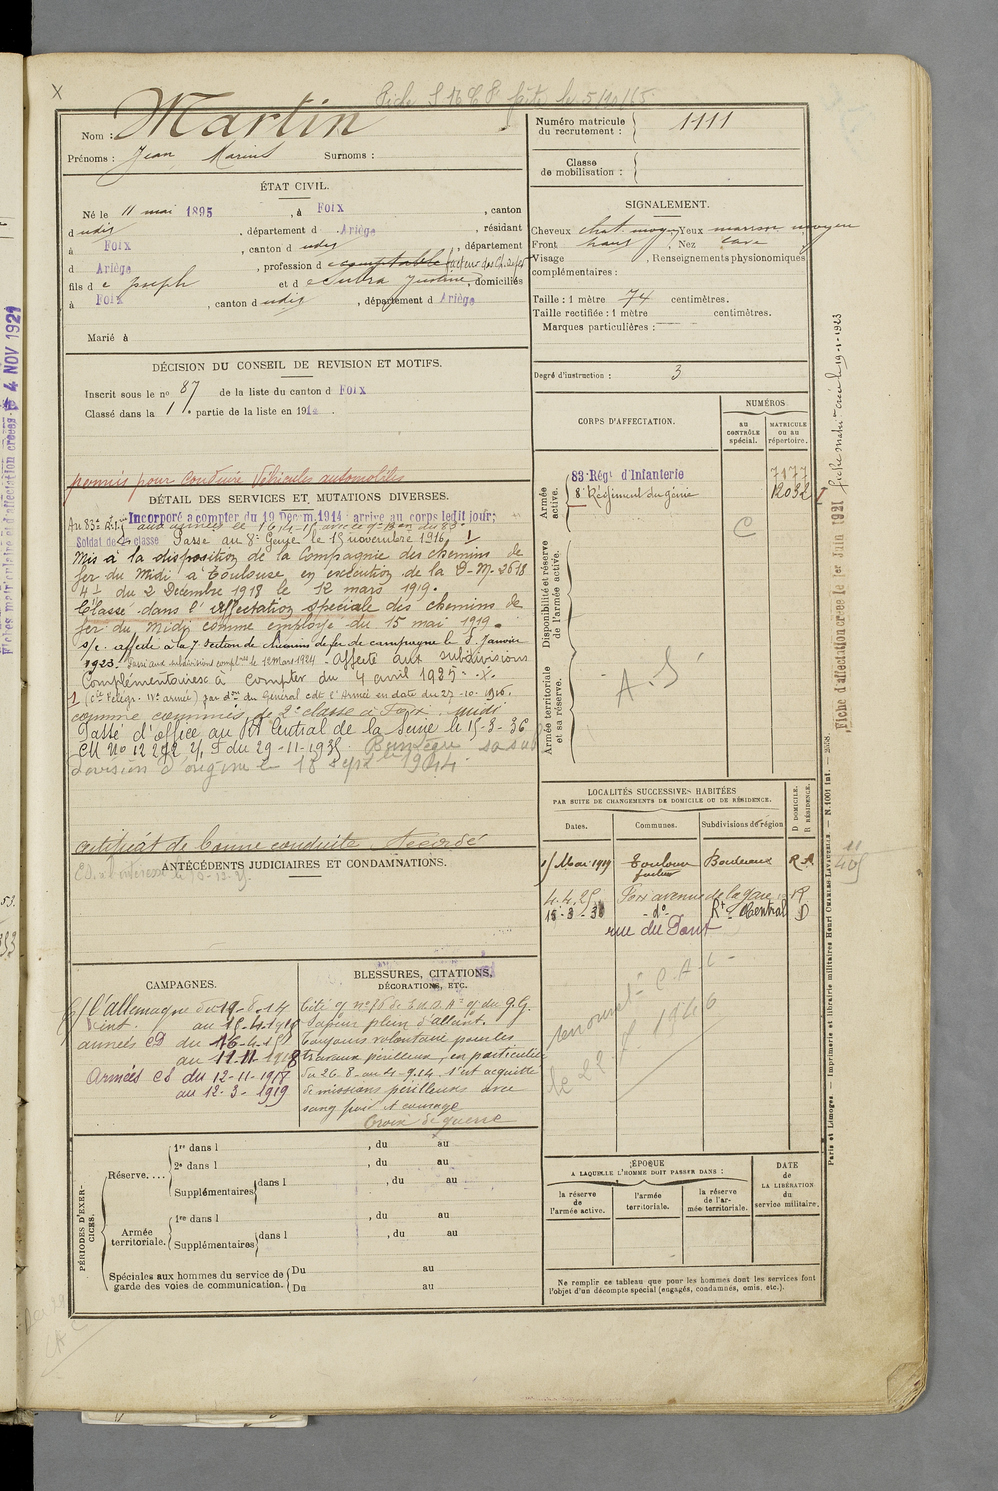 Nom : Martin
Prénoms : Jean Marius Surnoms :
Numéro matricule du recrutement : 1111
Classe de mobilisation :
ÉTAT CIVIL.
Né le 11 mai 1895, à Foix, canton
dudit, département d Ariège, résidant
à Foix, canton dudit, département
d Ariège, profession de comptable facteur
fils de Joseph et de Subra Justine, domiciliés
à Foix, canton dudit, département d Ariège
Marié à
SIGNALEMENT.
Cheveux chat. moyen Yeux marron moyen
Front haut, Nez cave
Visage, Renseignements physionomiques
complémentaires :
Taille : 1 mètre 74 centimètres.
Taille rectifiée : 1 mètre centimètres.
Marques particulières :
DÉCISION DU CONSEIL DE REVISION ET MOTIFS.
Inscrit sous le no 87 de la liste du canton d Foix
Classé dans la 1re partie de la liste en 1914.
Degré d'instruction : 3
permis pour conduire véhicules automobiles
DÉTAIL DES SERVICES ET MUTATIONS DIVERSES.
Incorporé a compter du 19 Decem. 1914 arrive au corps ledit jour;
Soldat de 2e classe Passe au 8e Génie le 15 novembre 1916
Mis à la disposition de la Compagnie des chemins de
fer du Midi à Toulouse en exécution de la D.M. 2618
du 2 Décembre 1918 le 12 mars 1919.
Classé dans l'affectation spéciale des chemins de
fer du Midi comme employé du 15 mai 1919.
affecté à la 7e Section de chemins de fer de campagne le Janvier
1923. Passé aux subdivisions complres le 12 Mars 1924 - Affecté aux subdivisions
Complémentaires à compter du 4 avril 1925
par don du Général cdt l'Armée en date du 27-10-1916.
comme commis de 2e classe à Foix. midi
Passé d'office au Rt Central de la Seine le 15-3-36
CM No du 29-11-1935.
division d'origine le 18 Septbre 1944
certificat de bonne conduite Accordé
ANTÉCÉDENTS JUDICIAIRES ET CONDAMNATIONS.
CORPS D'AFFECTATION.
NUMÉROS
AU CONTRÔLE spécial.
MATRICULE ou au répertoire.
Armée active.
83 Régt d'Infanterie 7177
8e Régiment du génie 12032
C
Disponibilité et réserve de l'armée active.
Armée territoriale et sa réserve.
A.S
LOCALITÉS SUCCESSIVES HABITÉES
PAR SUITE DE CHANGEMENTS DE DOMICILE OU DE RÉSIDENCE.
Dates. Communes. Subdivisions de région D DOMICILE. R RÉSIDENCE.
15 Mai 1919 Toulouse Bordeaux R
4.4.25 Foix avenue de la Gare R
15-3-36 do Rt Central D
rue du Pont
CAMPAGNES.
C/ l'allemagne du 19-8-14
int. au 15-4-1915
armées CD du 16-4-15
au 11-11-1918
Armées CS du 12-11-1918
au 12-3-1919
BLESSURES, CITATIONS, DÉCORATIONS, ETC.
Sapeur plein d'allant.
Toujours volontaire pour les
travaux périlleux, en particulier
s'est acquitté
de missions périlleuses avec
sang froid et courage
Croix de guerre
PÉRIODES D'EXERCICES.
Réserve....
1re dans l , du au
2e dans l , du au
Supplémentaires dans l , du au
Armée territoriale.
1re dans l , du au
Supplémentaires dans l , du au
Spéciales aux hommes du service de garde des voies de communication.
Du au
Du au
ÉPOQUE
A LAQUELLE L'HOMME DOIT PASSER DANS :
la réserve de l'armée active.
l'armée territoriale.
la réserve de l'armée territoriale.
DATE de LA LIBÉRATION du service militaire.
Ne remplir ce tableau que pour les hommes dont les services font
l'objet d'un décompte spécial (engagés, condamnés, omis, etc.).
Fiche d'affectation créée le 1er Juin 1921
Paris et Limoges. — Imprimerie et librairie militaires Henri CHARLES-LAVAUZELLE. — N. 1001 int.
4 NOV 1921